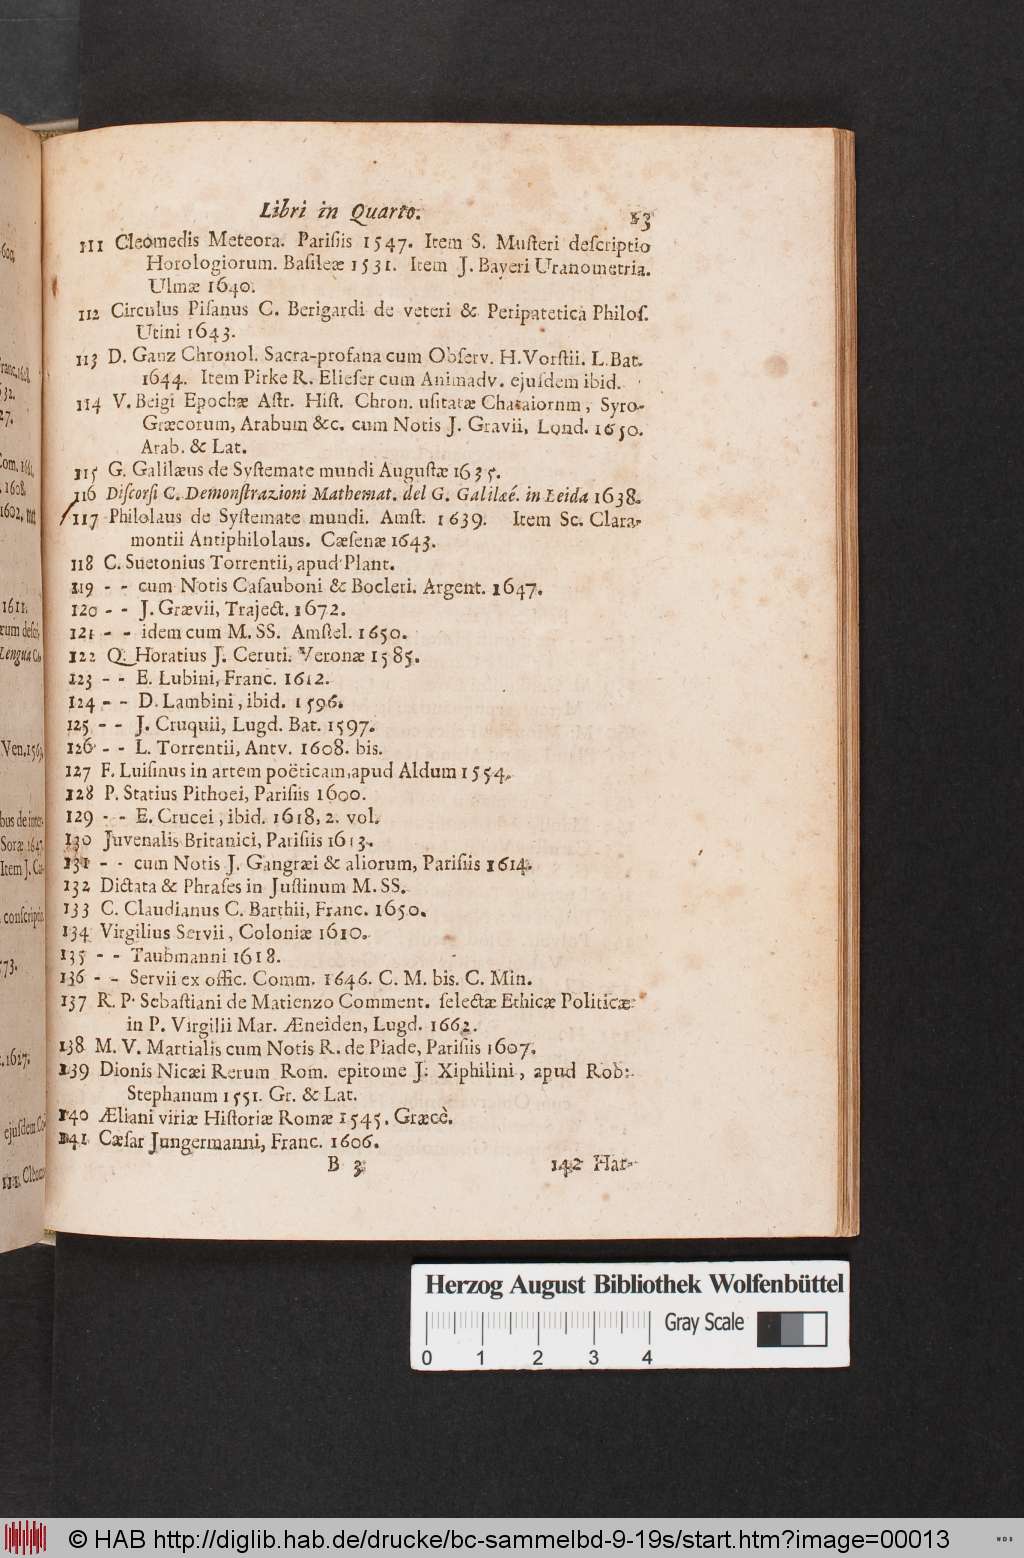 Libri in Quarto. 13
111 Cleomedis Meteora. Parisiis 1547. Item S. Musteri descriptio
Horologiorum. Basileæ 1531. Item J. Bayeri Uranometria.
Ulmæ 1640.
112 Circulus Pisanus C. Berigardi de veteri & Peripatetica Philos.
Utini 1643.
113 D. Ganz Chronol. Sacra-profana cum Observ. H. Vorstii. L. Bat.
1644. Item Pirke R. Elieser cum Animadv. ejusdem ibid.
114 V. Beigi Epochæ Astr. Hist. Chron. usitatæ Chataiorum, Syro-
Græcorum, Arabum &c. cum Notis J. Gravii, Lond. 1650.
Arab. & Lat.
115 G. Galilæus de Systemate mundi Augustæ 1635.
116 Discorsi C. Demonstrazioni Mathemat. del G. Galilæé. in Leida 1638.
117 Philolaus de Systemate mundi. Amst. 1639. Item Sc. Clara-
montii Antiphilolaus. Cæsenæ 1643.
118 C. Suetonius Torrentii, apud Plant.
119 - - cum Notis Casauboni & Bocleri. Argent. 1647.
120 - - J. Grævii, Traject. 1672.
121 - - idem cum M. SS. Amstel. 1650.
122 Q. Horatius J. Ceruti. Veronæ 1585.
123 - - E. Lubini, Franc. 1612.
124 - - D. Lambini, ibid. 1596.
125 - - J. Cruquii, Lugd. Bat. 1597.
126 - - L. Torrentii, Antv. 1608. bis.
127 F. Luisinus in artem poëticam, apud Aldum 1554.
128 P. Statius Pithoei, Parisiis 1600.
129 - - E. Crucei, ibid. 1618, 2. vol.
130 Juvenalis Britanici, Parisiis 1613.
131 - - cum Notis J. Gangræi & aliorum, Parisiis 1614.
132 Dictata & Phrases in Justinum M. SS.
133 C. Claudianus C. Barthii, Franc. 1650.
134 Virgilius Servii, Coloniæ 1610.
135 - - Taubmanni 1618.
136 - - Servii ex offic. Comm. 1646. C. M. bis. C. Min.
137 R. P. Sebastiani de Matienzo Comment. selectæ Ethicæ Politicæ
in P. Virgilii Mar. Æneiden, Lugd. 1662.
138 M. V. Martialis cum Notis R. de Piade, Parisiis 1607.
139 Dionis Nicæi Rerum Rom. epitome J. Xiphilini, apud Rob.
Stephanum 1551. Gr. & Lat.
140 Æliani viriæ Historiæ Romæ 1545. Græcè.
141 Cæsar Jungermanni, Franc. 1606.
B 3 142 Har-
Herzog August Bibliothek Wolfenbüttel
Gray Scale
0 1 2 3 4
© HAB http://diglib.hab.de/drucke/bc-sammelbd-9-19s/start.htm?image=00013